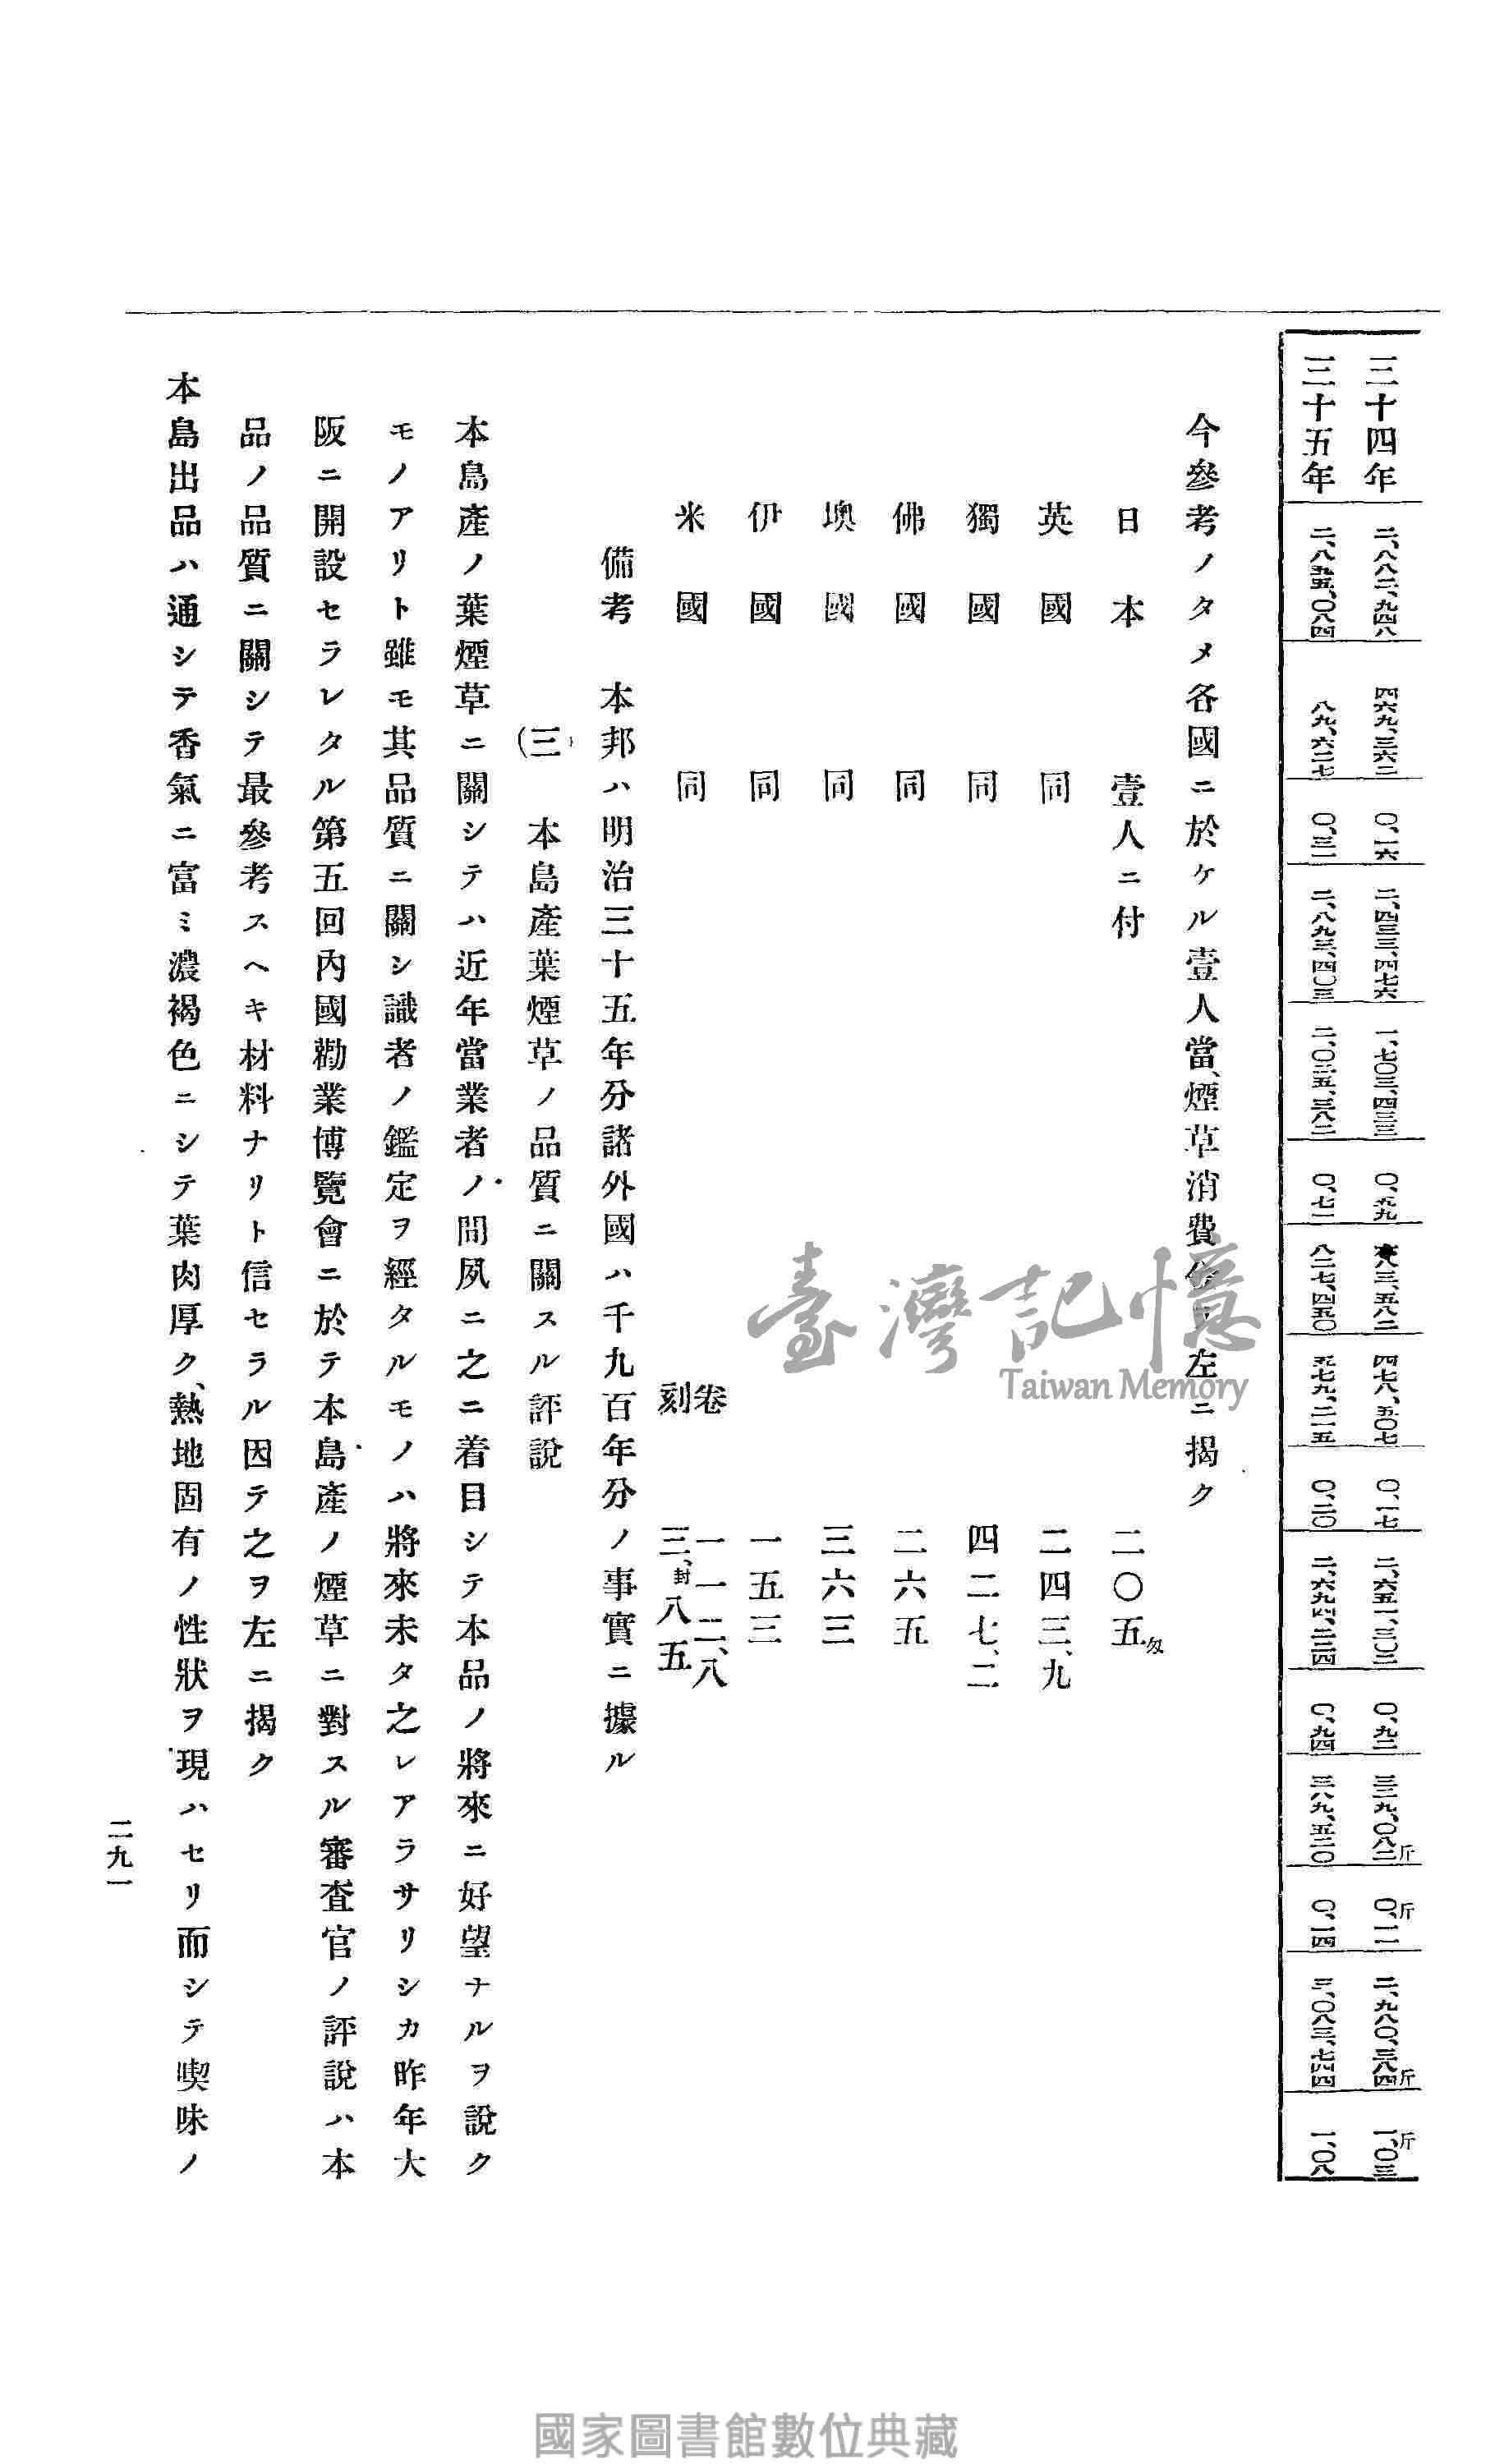 三十四年 二、八八二、九四八 四六九、三六三 〇、一六 二、四三三、四七六 一、七〇三、四三三 〇、五九 八三、五八二 四七八、五〇七 〇、一七 二、六五一、三〇三 〇、九二 三二九、〇八二斤 〇、一一斤 二、九八〇、三八四斤 一、〇三斤
三十五年 二、八五五、〇八四 八九、六二七 〇、三一 二、八九三、四〇三 二、〇二五、三八二 〇、七一 八二七、四五〇 五七九、二一五 〇、二〇 二、六九四、二二四 〇、九四 三八九、五二〇 〇、一四 三、〇八三、七四四 一、〇八
今參考ノタメ各國ニ於ケル壹人當、煙草消費 左ニ揭ク
日本 壹人ニ付 二〇五匁
英國 同 二四三、九
獨國 同 四二七、二
佛國 同 二六五
墺國 同 三六三
伊國 同 一五三
米國 同 卷 一一二、八
刻 三、封八五
備考 本邦ハ明治三十五年分諸外國ハ千九百年分ノ事實ニ據ル
(三) 本島產葉煙草ノ品質ニ關スル評說
本島產ノ葉煙草ニ關シテハ近年當業者ノ間夙ニ之ニ着目シテ本品ノ將來ニ好望ナルヲ說ク
モノアリト雖モ其品質ニ關シ識者ノ鑑定ヲ經タルモノハ將來未タ之レアラサリシカ昨年大
阪ニ開設セラレタル第五回內國勸業博覽會ニ於テ本島產ノ煙草ニ對スル審査官ノ評說ハ本
品ノ品質ニ關シテ最參考スヘキ材料ナリト信セラル因テ之ヲ左ニ揭ク
本島出品ハ通シテ香氣ニ富ミ濃褐色ニシテ葉肉厚ク、熱地固有ノ性狀ヲ現ハセリ而シテ喫味ノ
二九一
臺灣記憶
Taiwan Memory
國家圖書館數位典藏